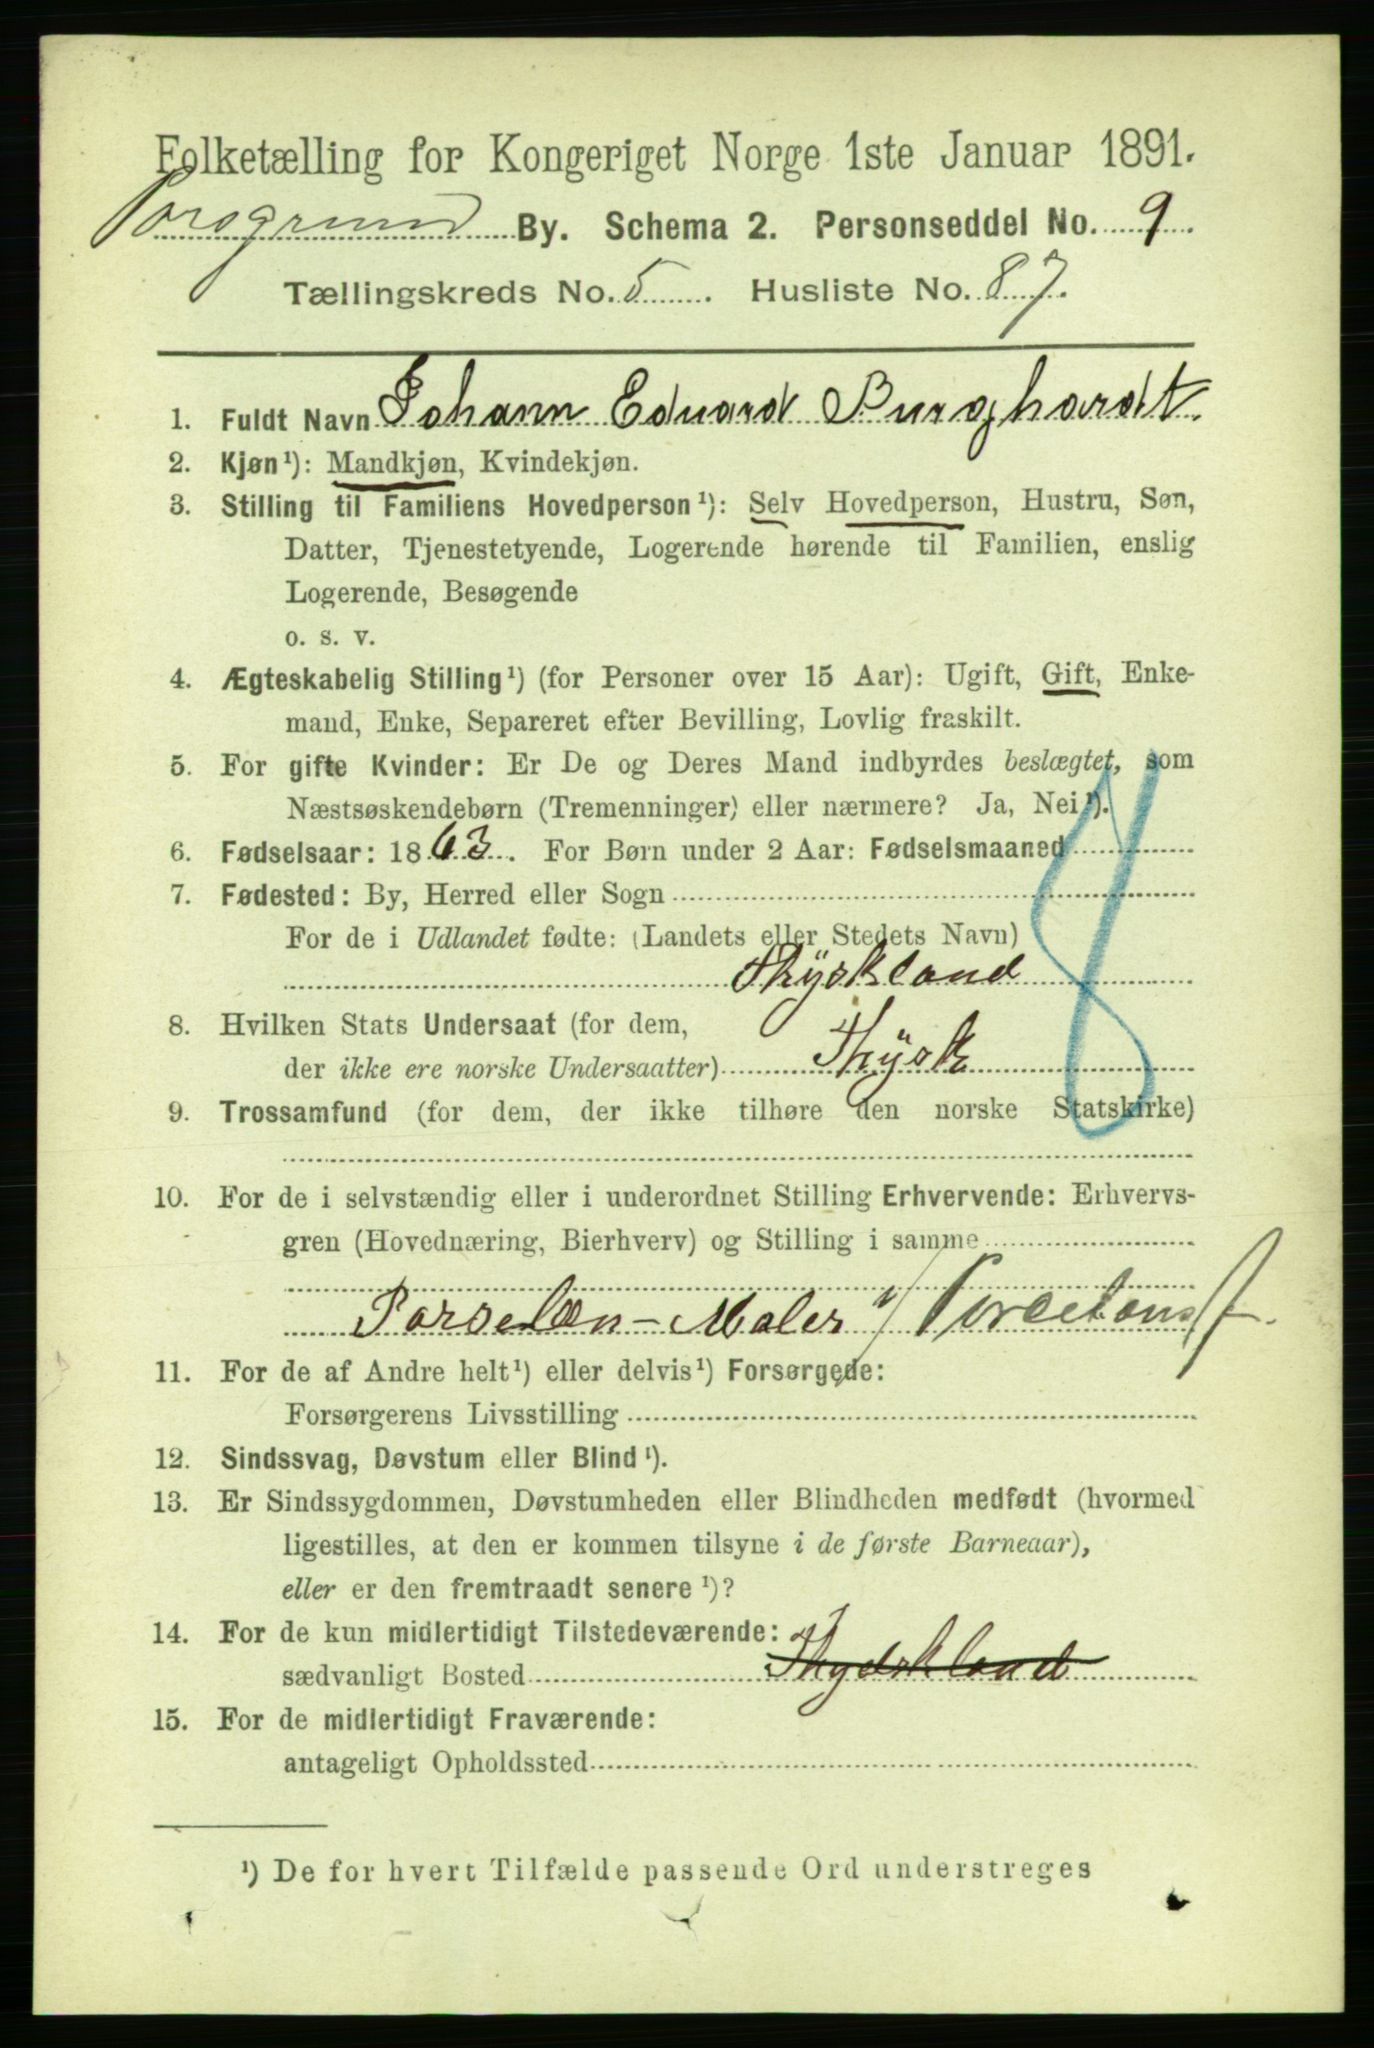 Folketælling for Kongeriget Norge 1ste Januar 1891.
Porsgrund By. Schema 2. Personseddel No. 9.
Tællingskreds No. 5. Husliste No. 87.
1. Fuldt Navn Johann Eduard Burghardt.
2. Kjøn¹): Mandkjøn, Kvindekjøn.
3. Stilling til Familiens Hovedperson¹): Selv Hovedperson, Hustru, Søn,
Datter, Tjenestetyende, Logerende hørende til Familien, enslig
Logerende, Besøgende
o. s. v.
4. Ægteskabelig Stilling¹) (for Personer over 15 Aar): Ugift, Gift, Enke-
mand, Enke, Separeret efter Bevilling, Lovlig fraskilt.
5. For gifte Kvinder: Er De og Deres Mand indbyrdes beslægtet, som
Næstsøskendebørn (Tremenninger) eller nærmere? Ja, Nei¹).
6. Fødselsaar: 1863. For Børn under 2 Aar: Fødselsmaaned
7. Fødested: By, Herred eller Sogn
For de i Udlandet fødte: (Landets eller Stedets Navn)
Thyskland
8. Hvilken Stats Undersaat (for dem,
der ikke ere norske Undersaatter) Thysk
9. Trossamfund (for dem, der ikke tilhøre den norske Statskirke)
10. For de i selvstændig eller i underordnet Stilling Erhvervende: Erhvervs-
gren (Hovednæring, Bierhverv) og Stilling i samme
Porselæn-Maler v/ Porcelansf.
11. For de af Andre helt¹) eller delvis¹) Forsørgede:
Forsørgerens Livsstilling
12. Sindssvag, Døvstum eller Blind¹).
13. Er Sindssygdommen, Døvstumheden eller Blindheden medfødt (hvormed
ligestilles, at den er kommen tilsyne i de første Barneaar),
eller er den fremtraadt senere¹)?
14. For de kun midlertidigt Tilstedeværende:
sædvanligt Bosted Thydskland
15. For de midlertidigt Fraværende:
antageligt Opholdssted
¹) De for hvert Tilfælde passende Ord understreges